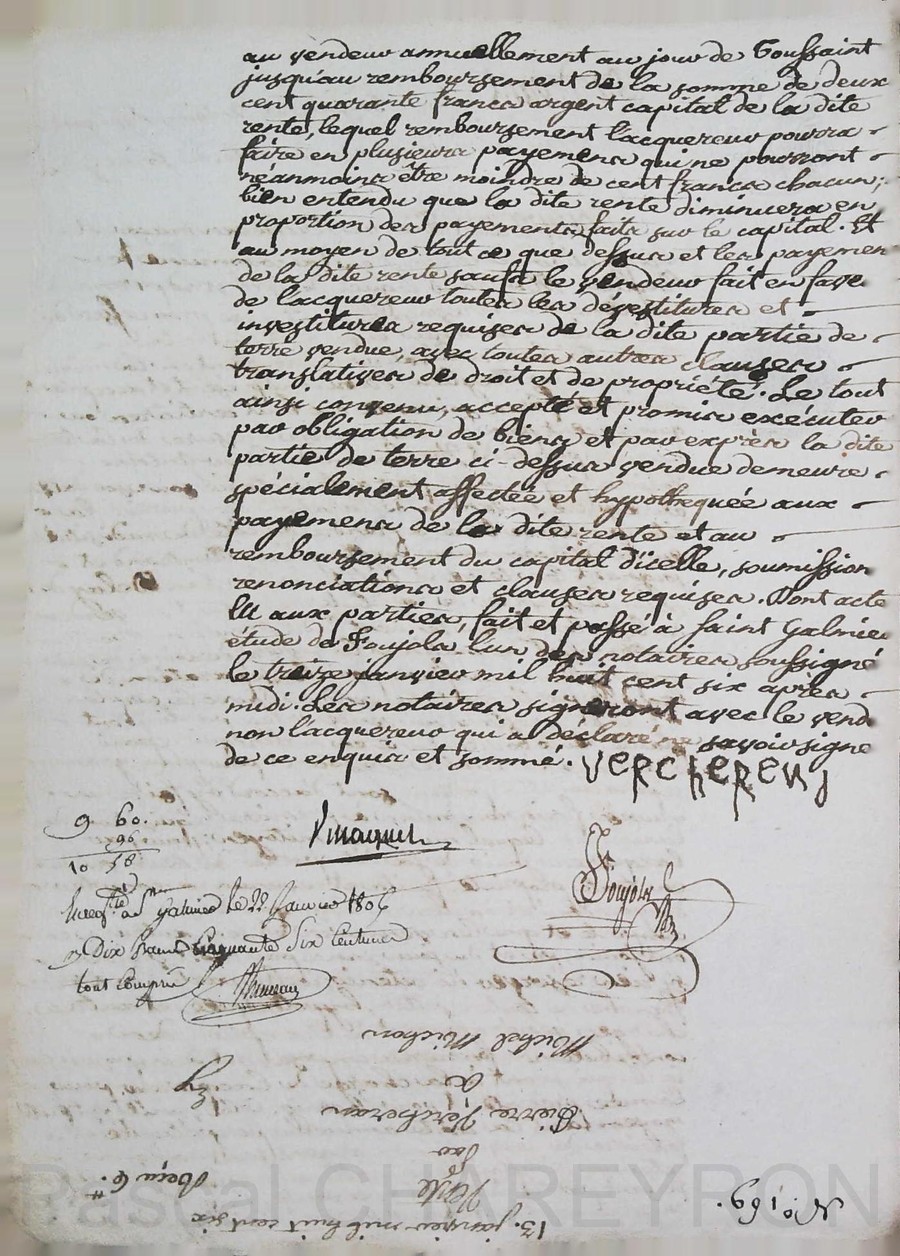 au vendeur annuellement au jour de Toussaint
jusqu'au remboursement de la somme de deux
cent quarante francs argent capital de la dite
rente, lequel remboursement l'acquereur pourra
faire en plusieurs payemens qui ne pourront
néanmoins être moindre de cent francs chacun;
bien entendu que la dite rente diminuera en
proportion des payements faits sur le capital. Et
au moyen de tout ce que dessus et les payemen
de la dite rente saufs le vendeur fait en fave
de lacquereur toutes les dévestitures et
investitures requises de la dite partie de
terre vendue, avec toutes autres clauses
translatives de droit et de propriété. Le tout
ainsi convenu, accepté et promis exécuter
par obligation de biens et par exprès la dite
partie de terre ci-dessus vendue demeure
spécialement affectée et hypothequée aux
payemens de la dite rente et au
remboursement du capital d'icelle, soumission
renonciations et clauses requises. Dont acte
lu aux parties, fait et passé à saint Galmier
étude de Foujols l'un des notaires soussigné
le treize janvier mil huit cent six après
midi. Les notaires signeront avec le vend
non l'acquereur qui a déclaré ne savoir signe
de ce enquis et sommé. vercheren
9 60.
96
10 56
Foujols
Nre
Enregtré à St Galmier le 22 Janvier 1806
Dix francs Cinquante Six Centimes
tout compris
Michel Michon
a
Pierre Vercheran
par
Vente
Reçu 6.#
13. janvier mil huit cent six
No. 169.
Pascal CHAREYRON